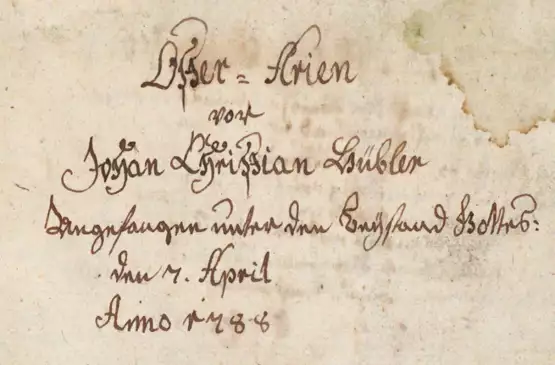 Oster = Arien
vor
Johan Christian Hübler
Angefangen unter den Beystand Gottes:
den 7. April
Anno 1788